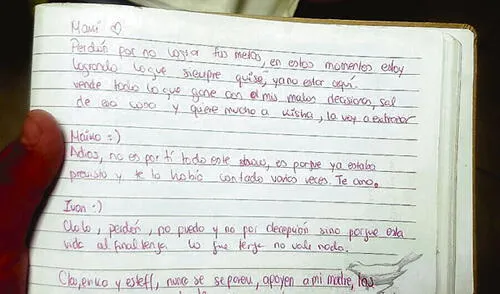 Mami ♡
Perdón por no lograr tus metas, en estos momentos estoy
logrando lo que siempre quise, ya no estar aquí.
vende todo lo que gane con mis malas decisiones, sal
de esa casa y quiere mucho a kisha, la voy a extrañar
:)
Adios, no es por tí todo este show, es porque ya estaba
previsto y te lo había contado varias veces. Te amo.
Ivan :)
Cholo, perdón, no puedo y no por decepción sino porque esta
vida al final tenga. Lo que tenga no vale nada.
y esteff, nunca se separen, apoyen a mi madre, los